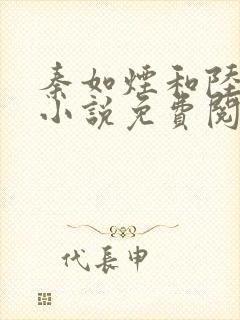 秦如煙和陸
小說免費閱
代長申